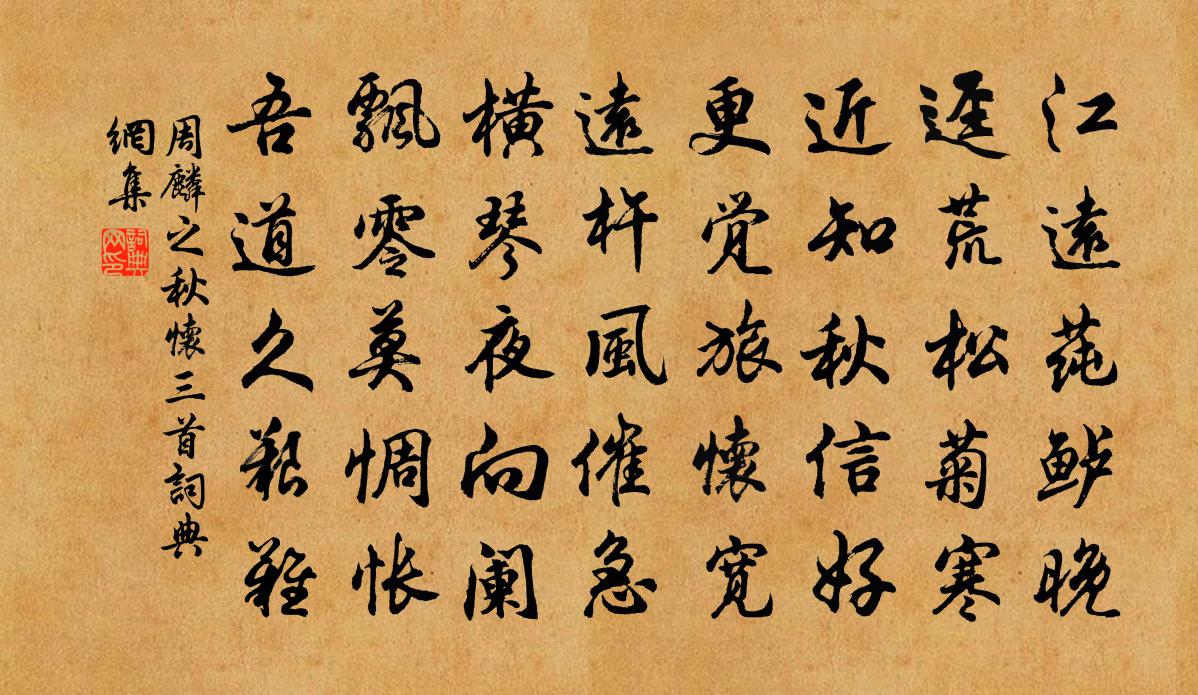 江遠莼鲈晚
逕荒松菊寒
近知秋信好
更觉旅懷寬
遠杵風催急
橫琴夜向阑
飄零莫惆怅
吾道久艱難
周麟之秋懷三首詞典
網集
詞典网印